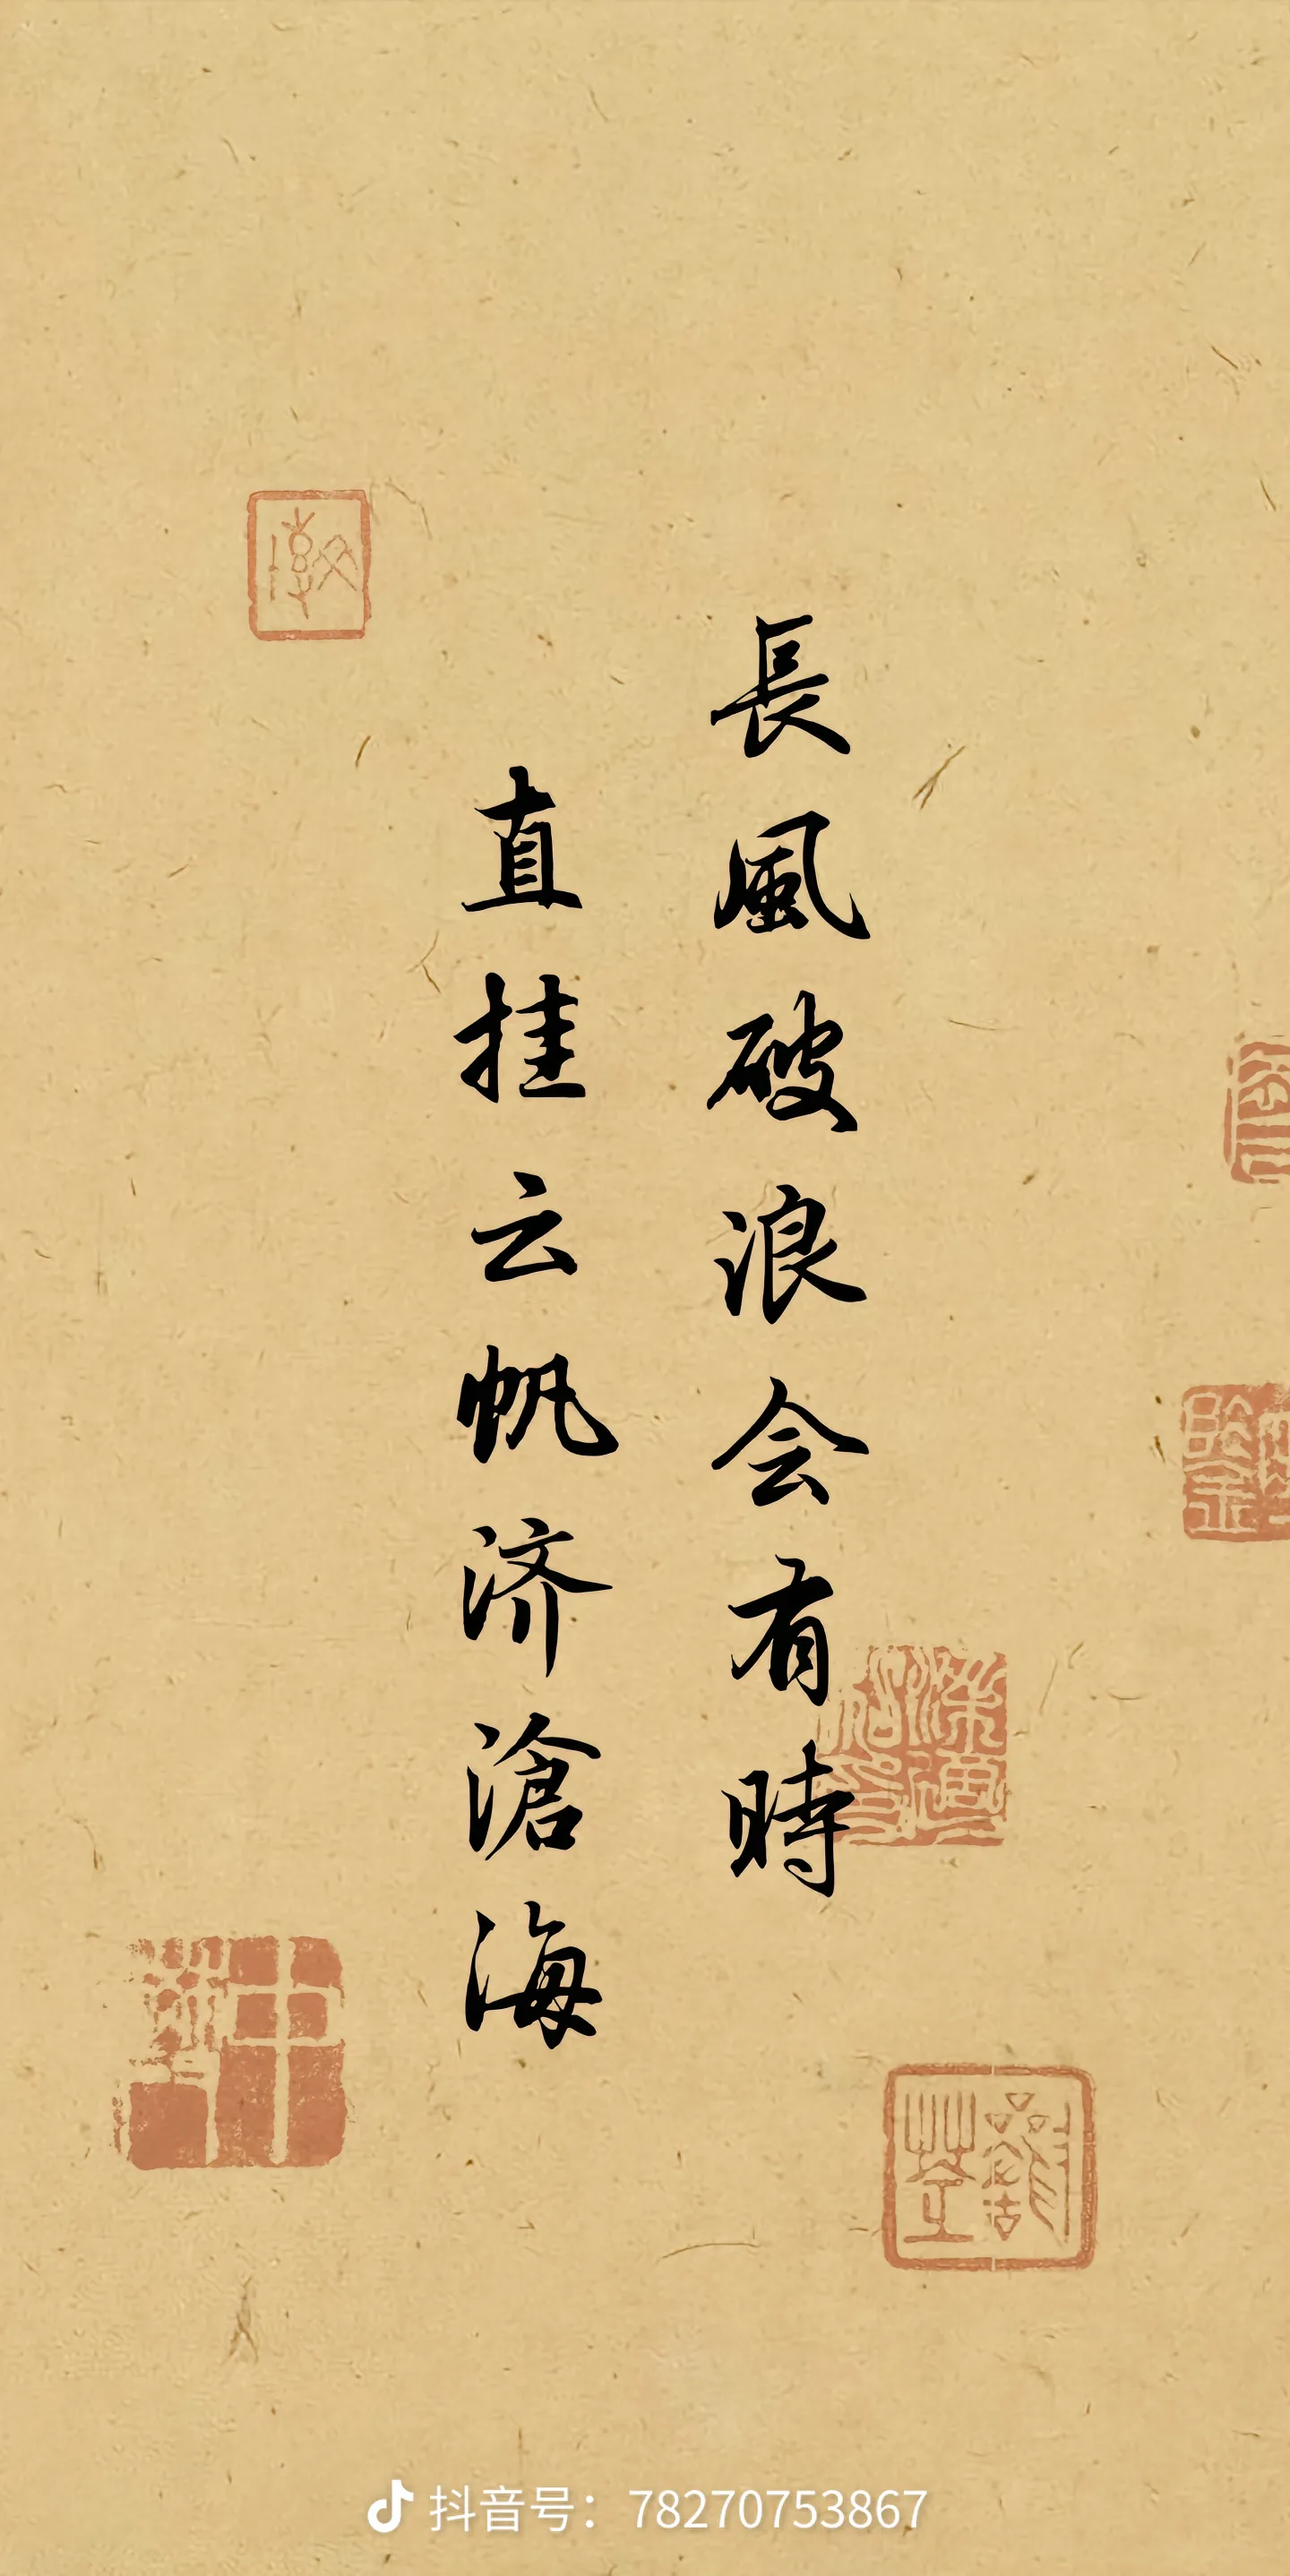 長風破浪会有時
直挂云帆济滄海
抖音号：78270753867